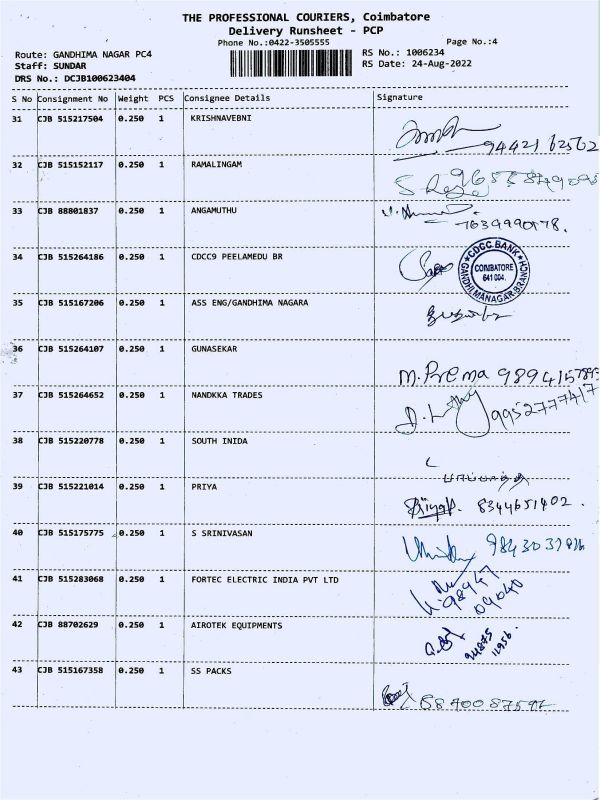 THE PROFESSIONAL COURIERS, Coimbatore
Delivery Runsheet - PCP
Phone No.:0422-3505555
Page No.:4
Route: GANDHIMA NAGAR PC4
RS No.: 1006234
Staff: SUNDAR
RS Date: 24-Aug-2022
DRS No.: DCJB100623404
S No Consignment No Weight PCS Consignee Details Signature
31 CJB 515217504 0.250 1 KRISHNAVEBNI
94421 62562
32 CJB 515152117 0.250 1 RAMALINGAM
33 CJB 88801837 0.250 1 ANGAMUTHU
7639990178.
34 CJB 515264186 0.250 1 CDCC9 PEELAMEDU BR
CDCC.BANK
COIMBATORE
641 004.
GANDHIMANAGAR-BRANCH
35 CJB 515167206 0.250 1 ASS ENG/GANDHIMA NAGARA
36 CJB 515264107 0.250 1 GUNASEKAR
M.Prema
37 CJB 515264652 0.250 1 NANDKKA TRADES
9952777417
38 CJB 515220778 0.250 1 SOUTH INIDA
39 CJB 515221014 0.250 1 PRIYA
8344651402.
40 CJB 515175775 0.250 1 S SRINIVASAN
41 CJB 515283068 0.250 1 FORTEC ELECTRIC INDIA PVT LTD
98947
09040
42 CJB 88702629 0.250 1 AIROTEK EQUIPMENTS
94875
11956.
43 CJB 515167358 0.250 1 SS PACKS